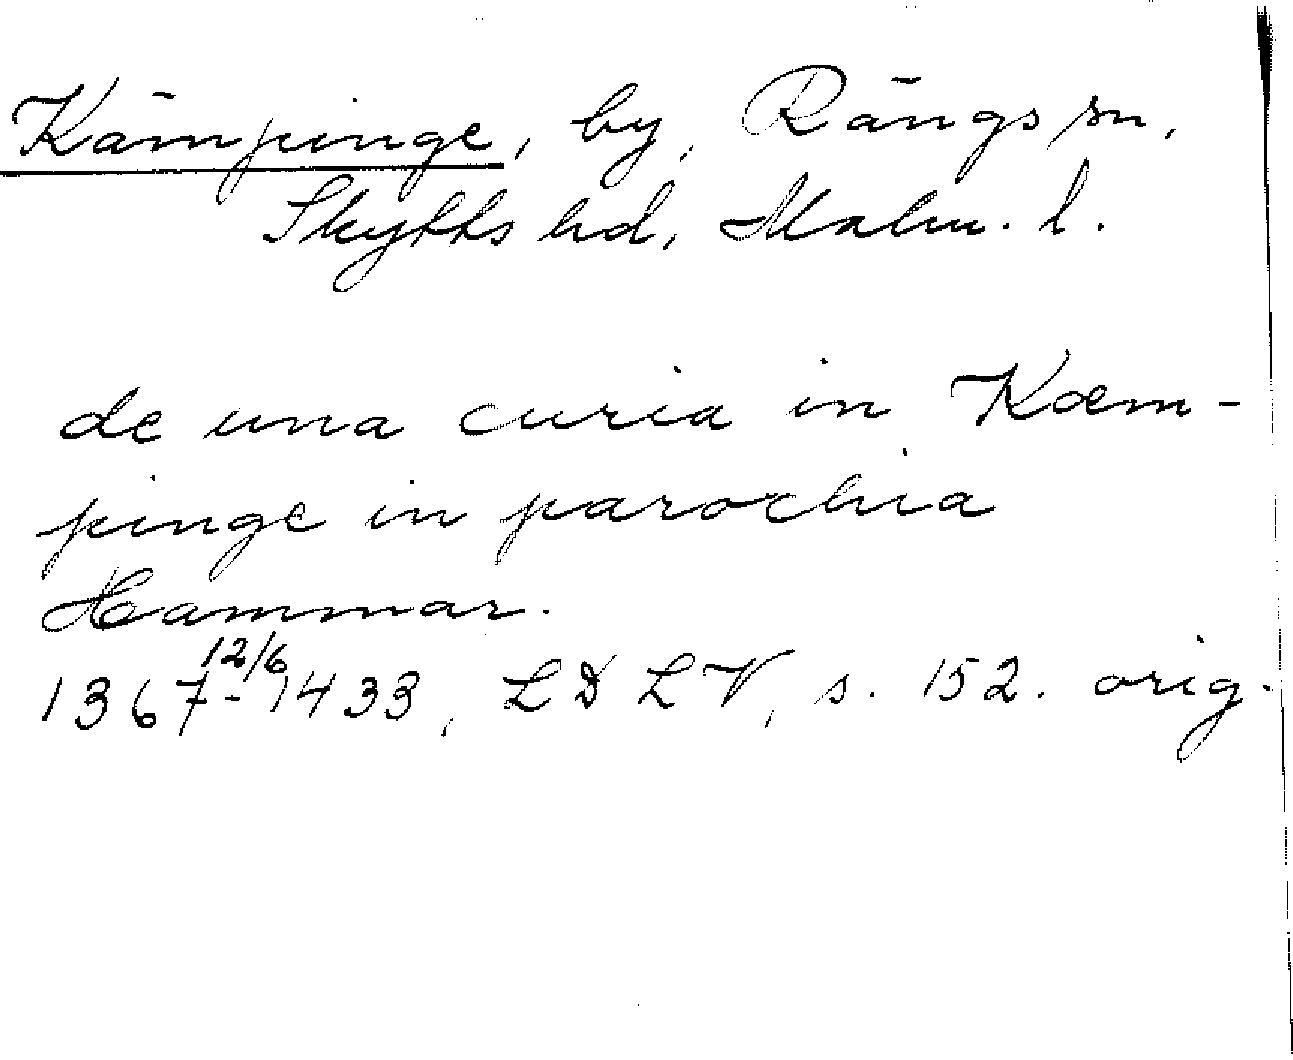 Kämpinge, by, Rängs sn,
Skytts hd, Malm. l.
de una curia in Kæm-
pinge in parochia
Hammar.
12/6
1367-1433, LDLV, s. 152. orig.